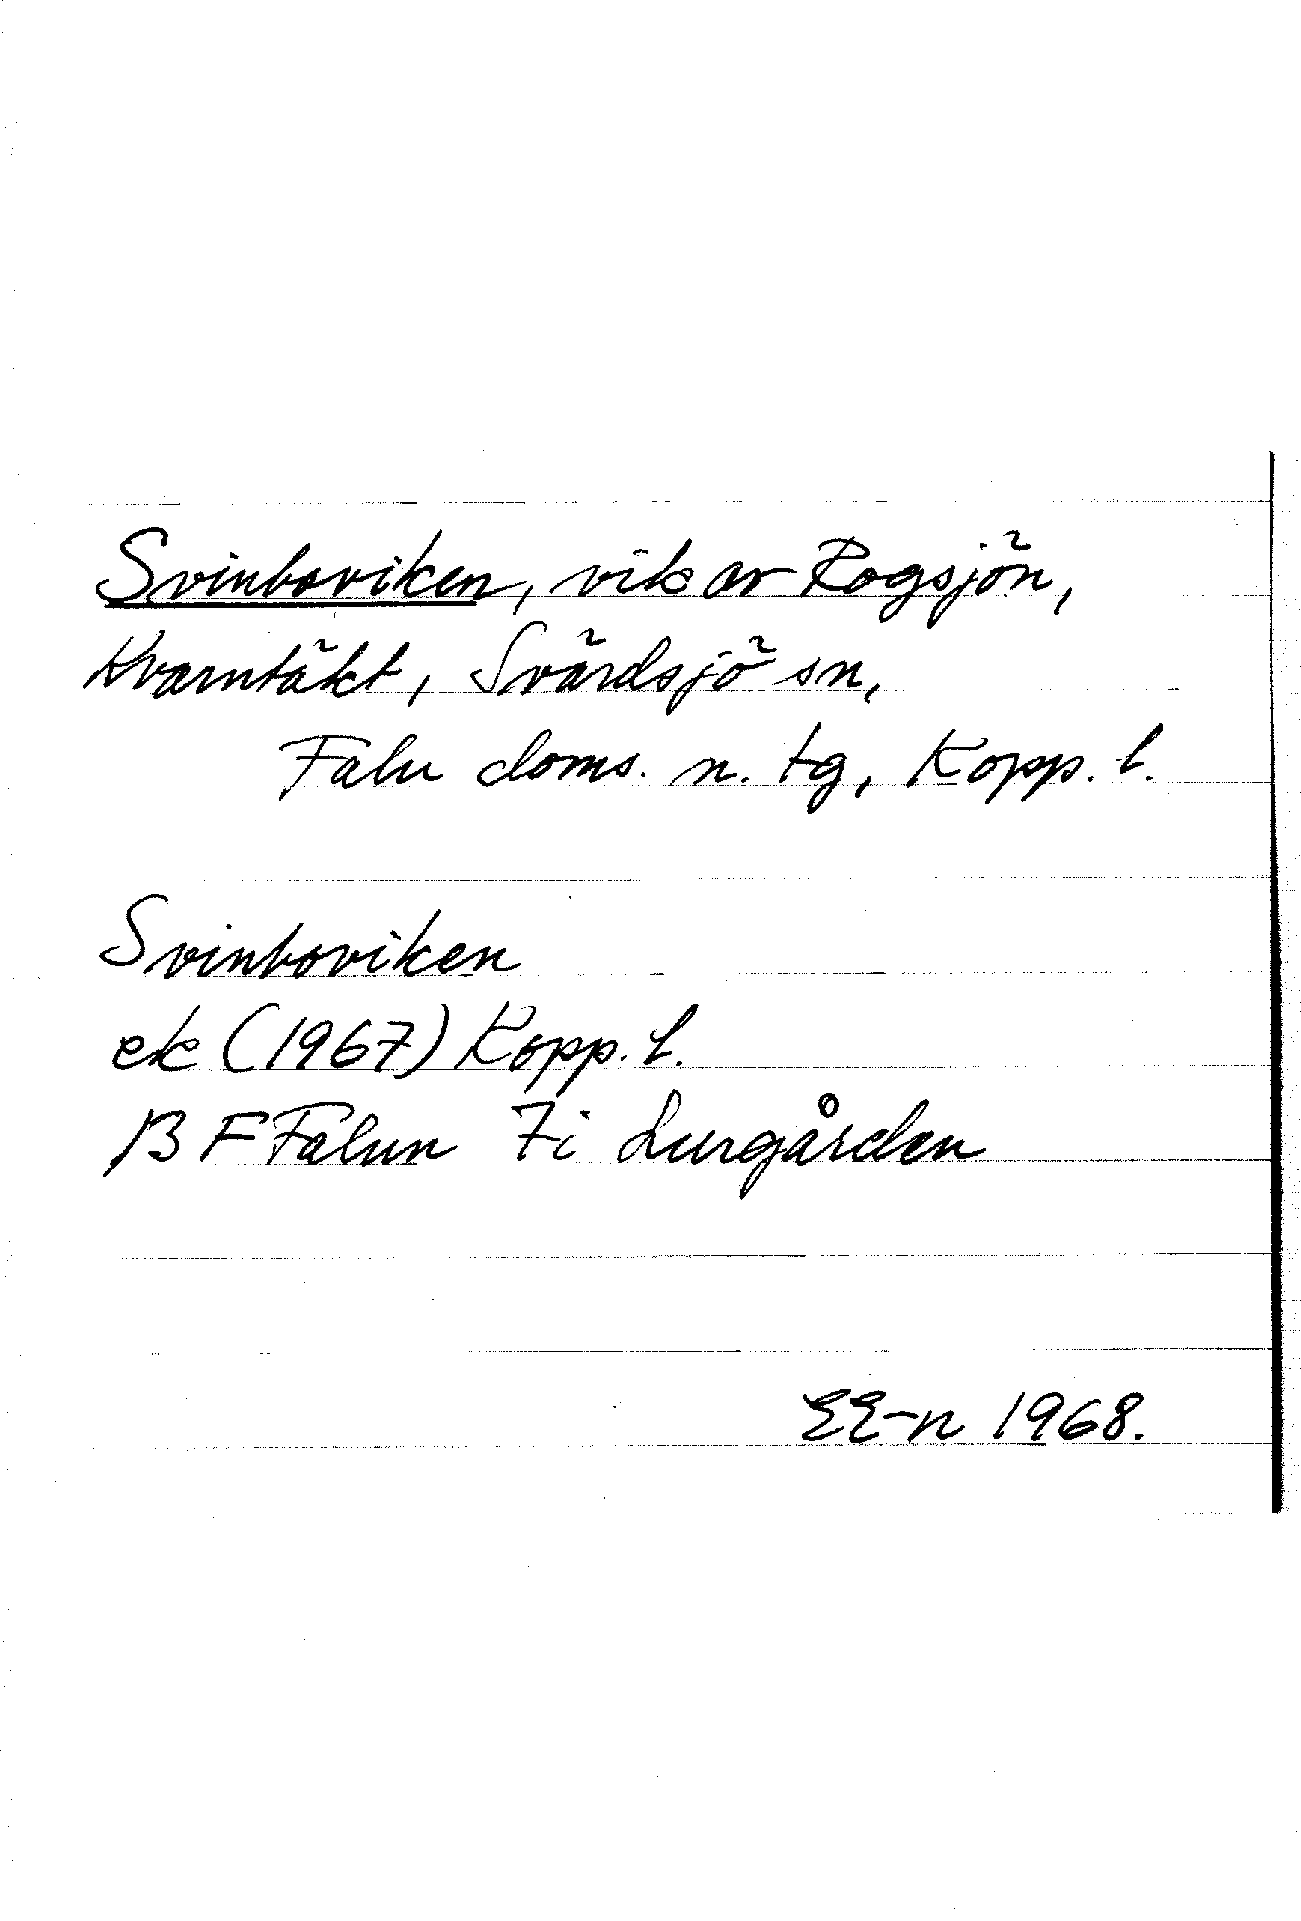 Svinboviken, vik av Rogsjön,
Kvarntäkt, Svärdsjö sn,
Falu doms. n. tg, Kopp. l.
Svinboviken
ek (1967) Kopp. l.
BF Falun 7i Lurgården
EE-n 1968.